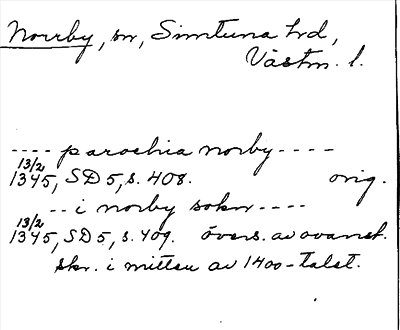 Norrby, sn, Simtuna hd,
Västm. l.
---- parochia norby ----
13/2
1345, SD 5, s. 408. orig.
-- i norby sokn ----
13/2
1345, SD 5, s. 409. övers. av ovanst.
skr. i mitten av 1400-talet.